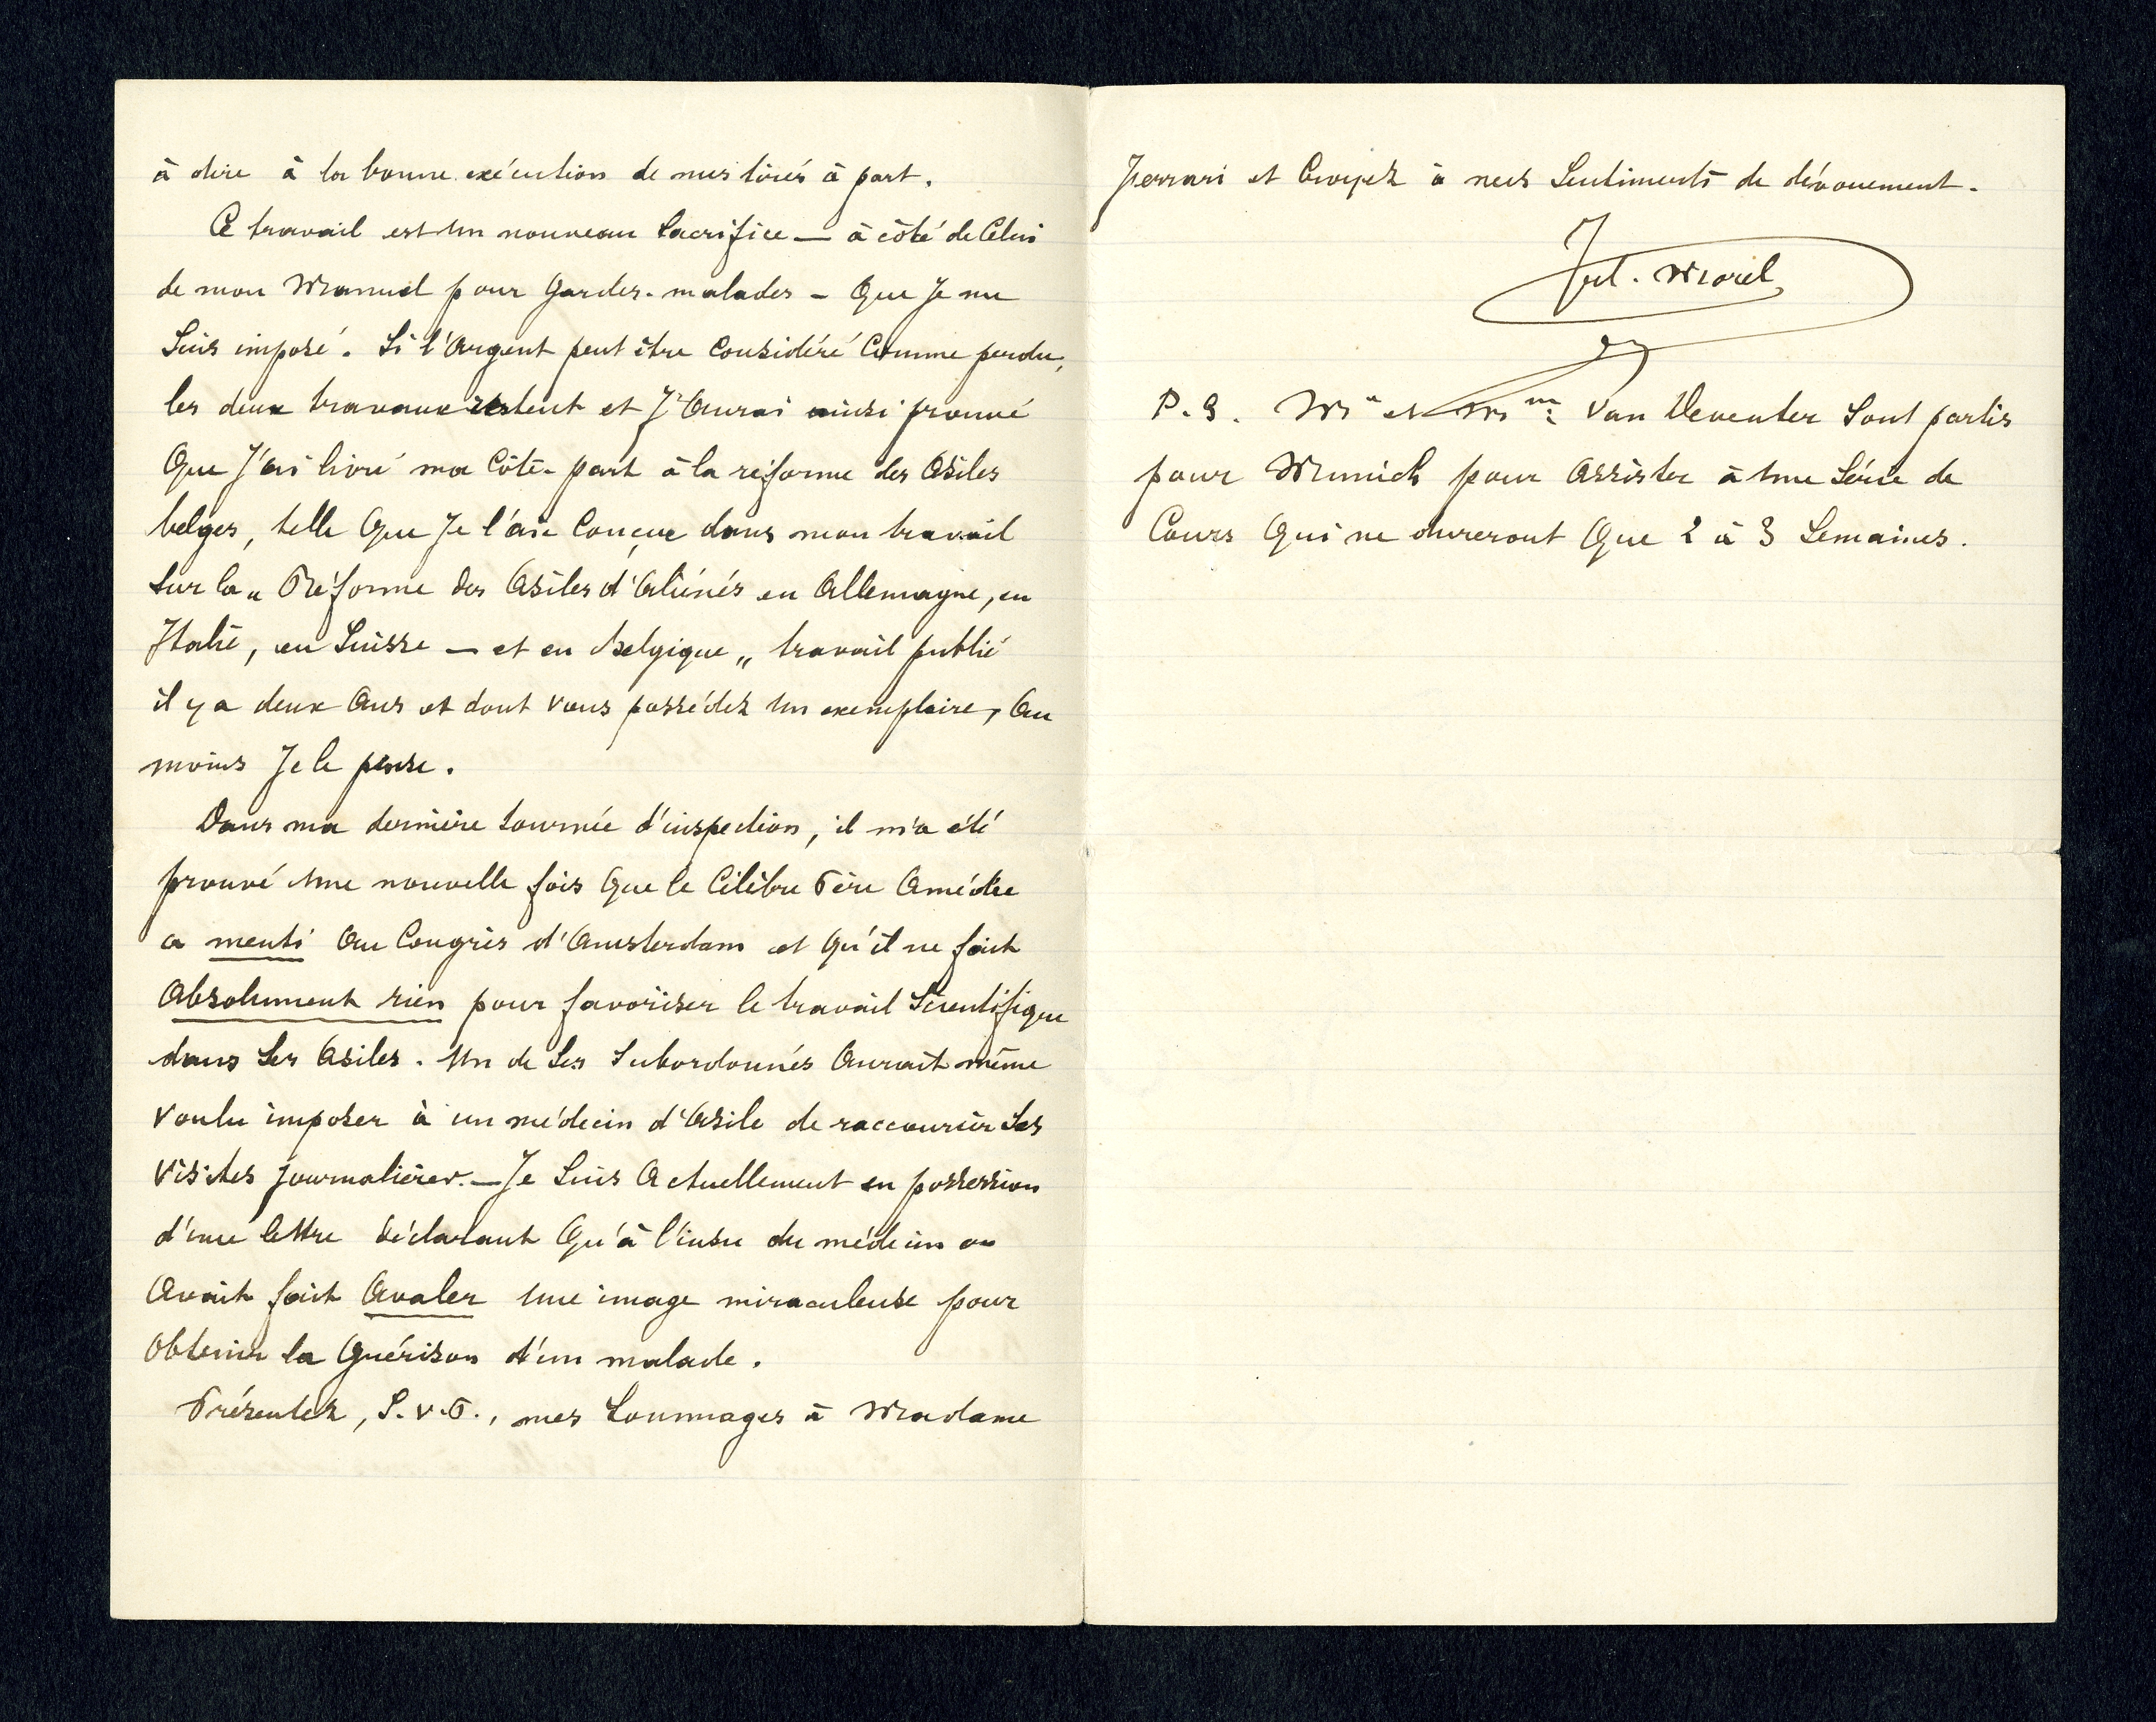 à dire à la bonne exécution de mes tirés à part.
Ce travail est un nouveau sacrifice — à côté de celui
de mon Manuel pour gardes-malades — que je me
suis imposé. Si l'argent peut être considéré comme perdu,
les deux travaux restent et j'aurai ainsi prouvé
que j'ai livré ma côte-part à la réforme des asiles
belges, telle que je l'aie conçue dans mon travail
sur la „ Réforme des Asiles d'aliénés en Allemagne, en
Italie, en Suisse — et en Belgique „ travail publié
il y a deux ans et dont vous possédez un exemplaire, au
moins je le pense.
Dans ma dernière tournée d'inspection, il m'a été
prouvé une nouvelle fois que le célèbre Père Amédée
a menti au Congrès d'Amsterdam et qu'il ne fait
absolument rien pour favoriser le travail scientifique
dans ses asiles. Un de ses subordonnés aurait même
voulu imposer à un médecin d'asile de raccourcir ses
visites journalières. — Je suis actuellement en possession
d'une lettre déclarant qu'à l'insu du médecin on
avait fait avaler une image miraculeuse pour
obtenir la guérison d'un malade.
Présentez, S.V.P., mes hommages à Madame
Ferrari et croyez à mes sentiments de dévouement.
Jul. Morel
P.S. Mr et Mme Van Deventer sont partis
pour Munich pour assister à une série de
cours qui ne dureront que 2 à 3 semaines.